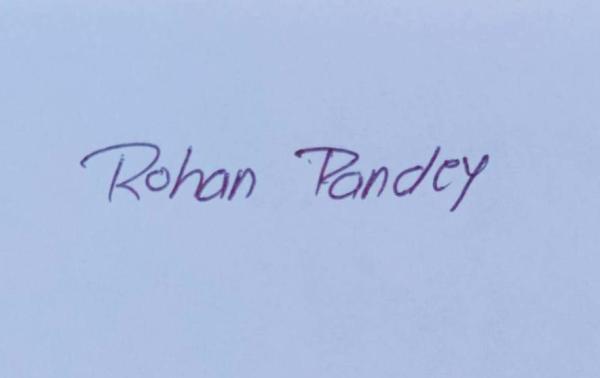 Rohan Pandey